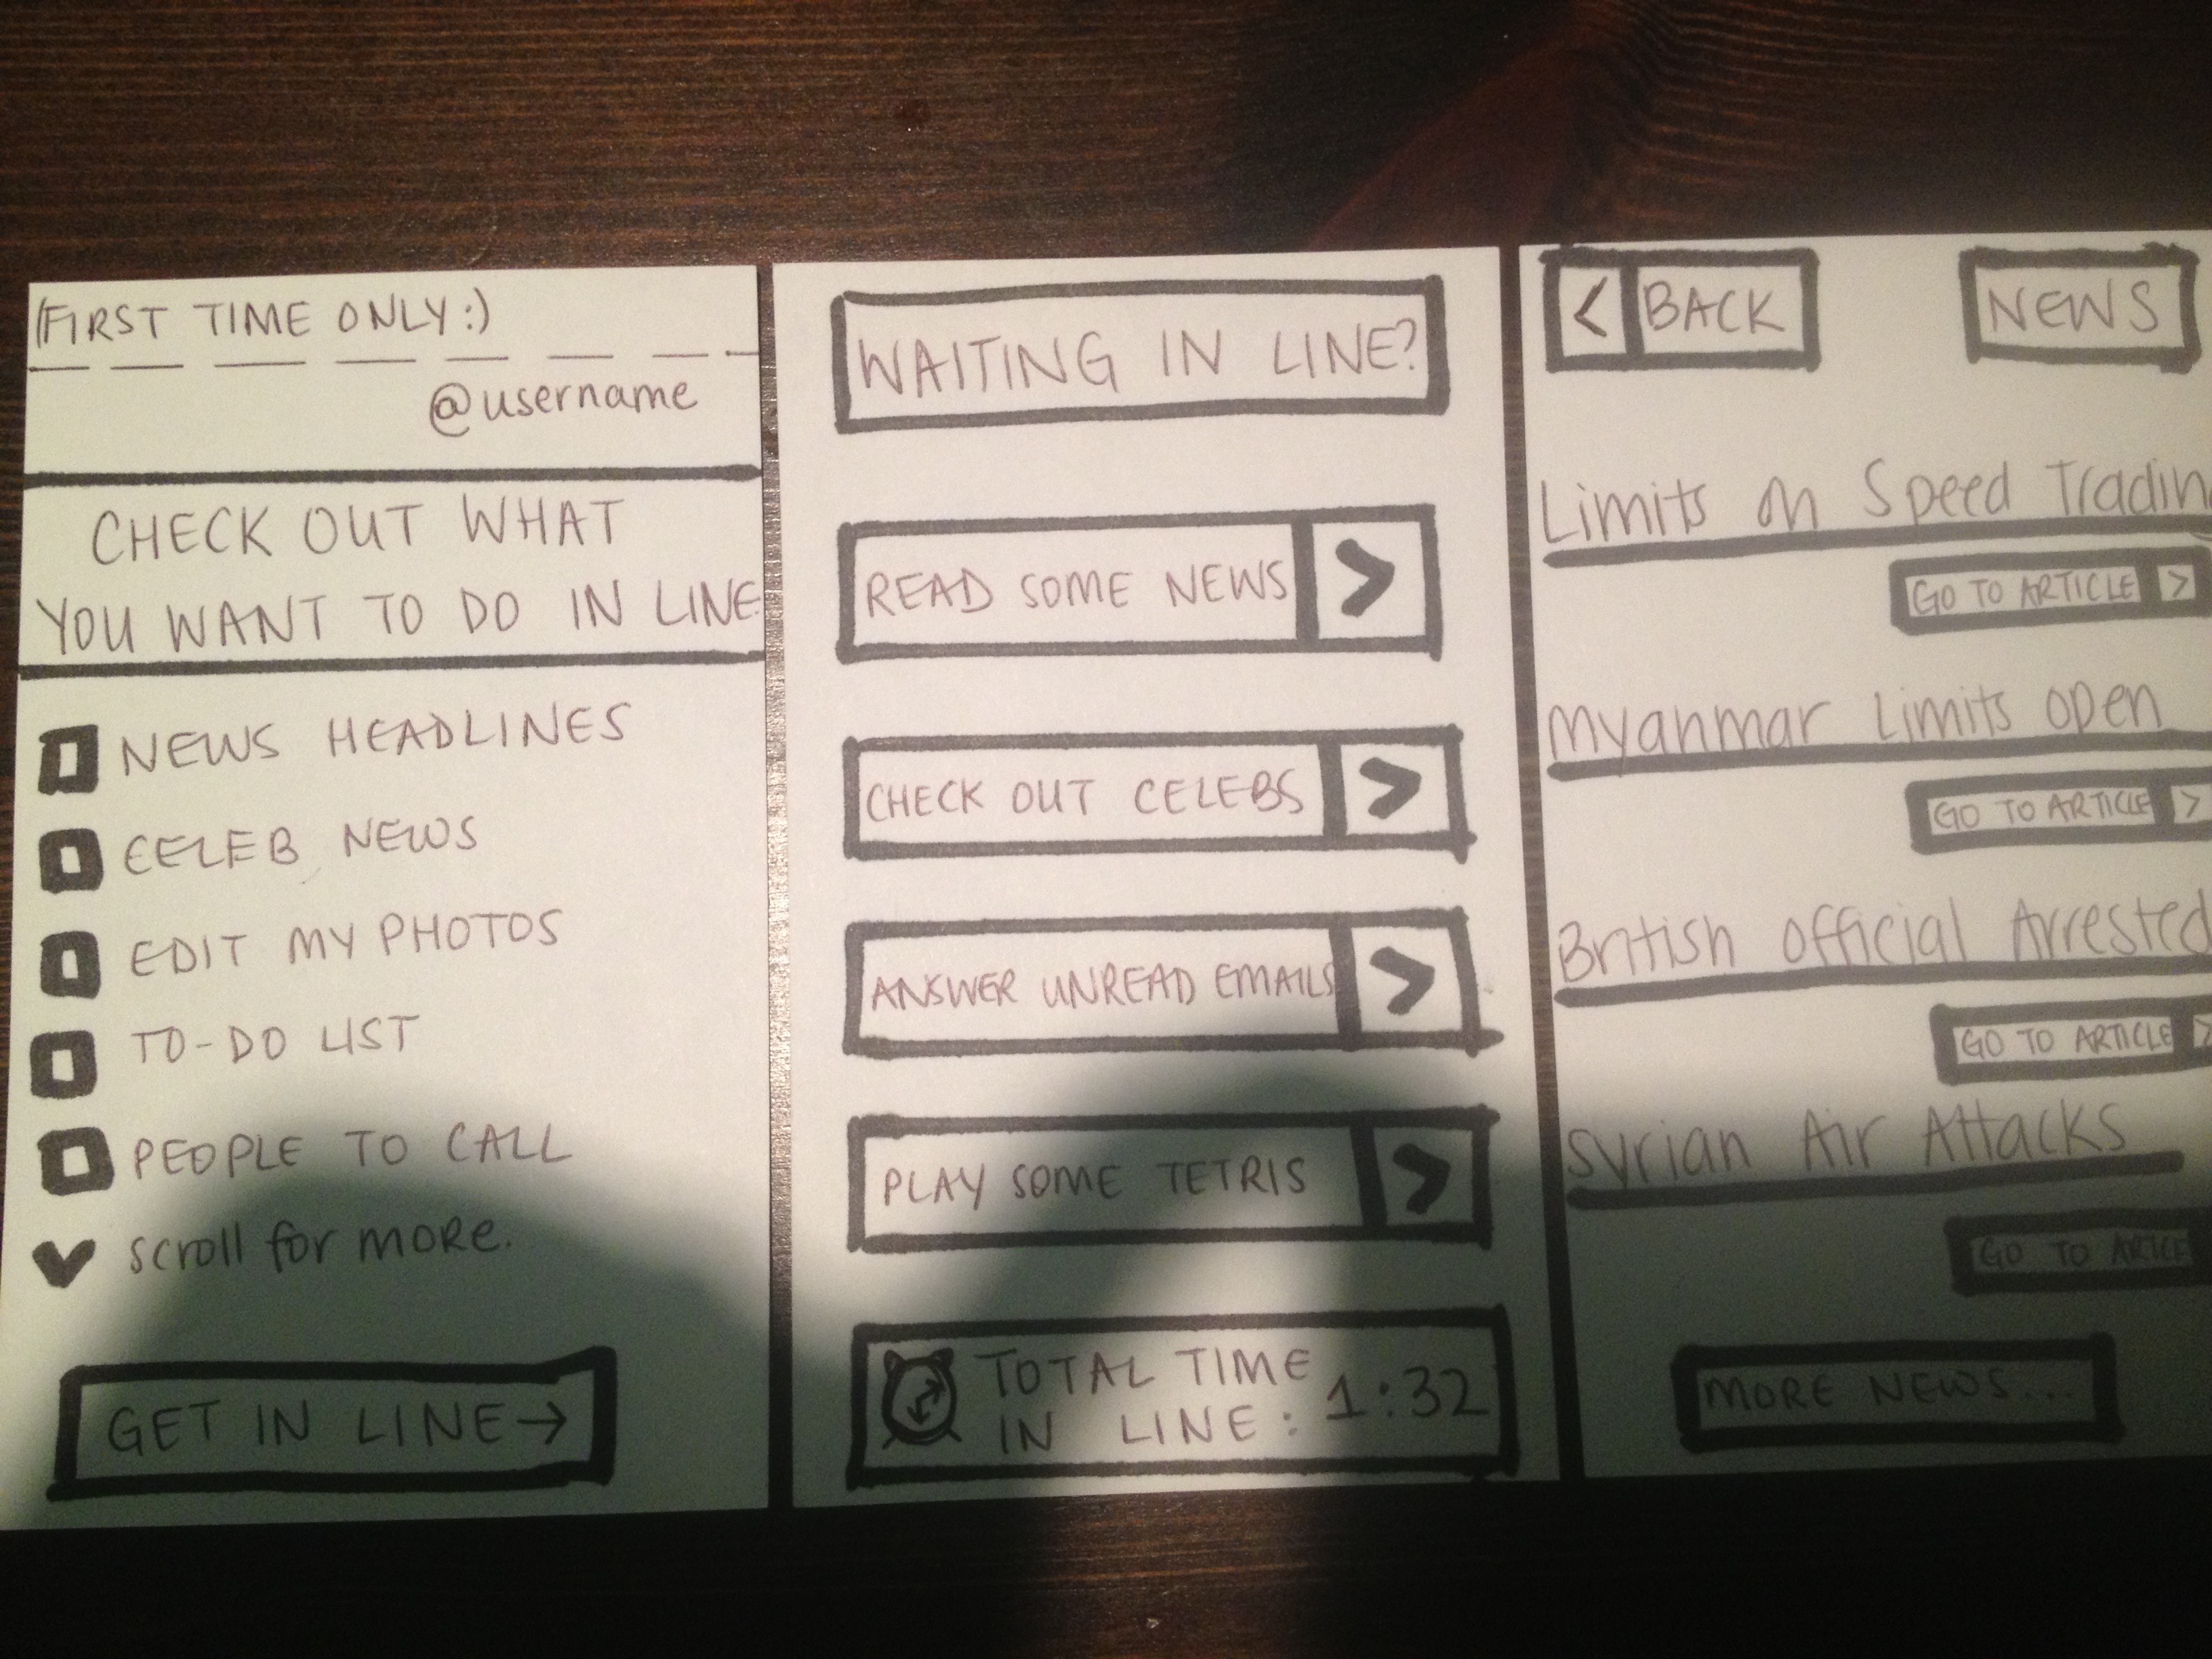 (FIRST TIME ONLY:)
@username
CHECK OUT WHAT
YOU WANT TO DO IN LINE
NEWS HEADLINES
CELEB NEWS
EDIT MY PHOTOS
TO-DO LIST
PEOPLE TO CALL
scroll for more.
GET IN LINE→
WAITING IN LINE?
READ SOME NEWS >
CHECK OUT CELEBS >
ANSWER UNREAD EMAILS >
PLAY SOME TETRIS >
TOTAL TIME
IN LINE: 1:32
< BACK
NEWS
Limits on Speed Tradin
GO TO ARTICLE >
Myanmar Limits open
GO TO ARTICLE >
British official Arrested
GO TO ARTICLE >
Syrian Air Attacks
GO TO ARTICLE
MORE NEWS...